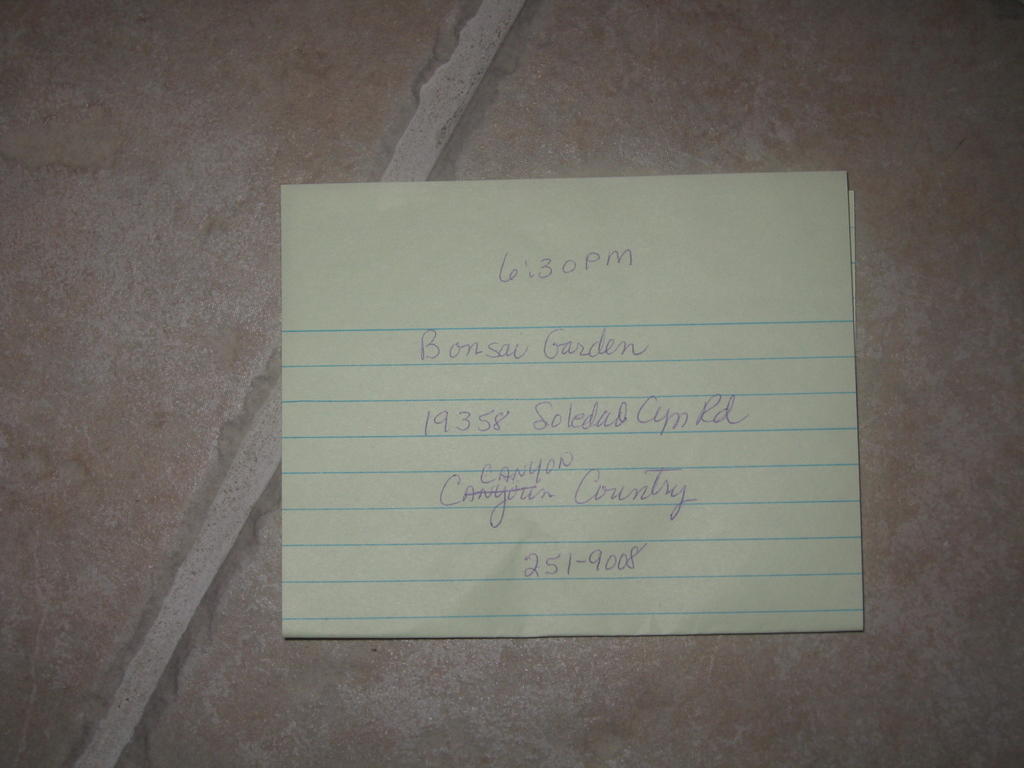 6:30 PM
Bonsai Garden
19358 Soledad Cyn Rd
CANYON
Country
251-9008